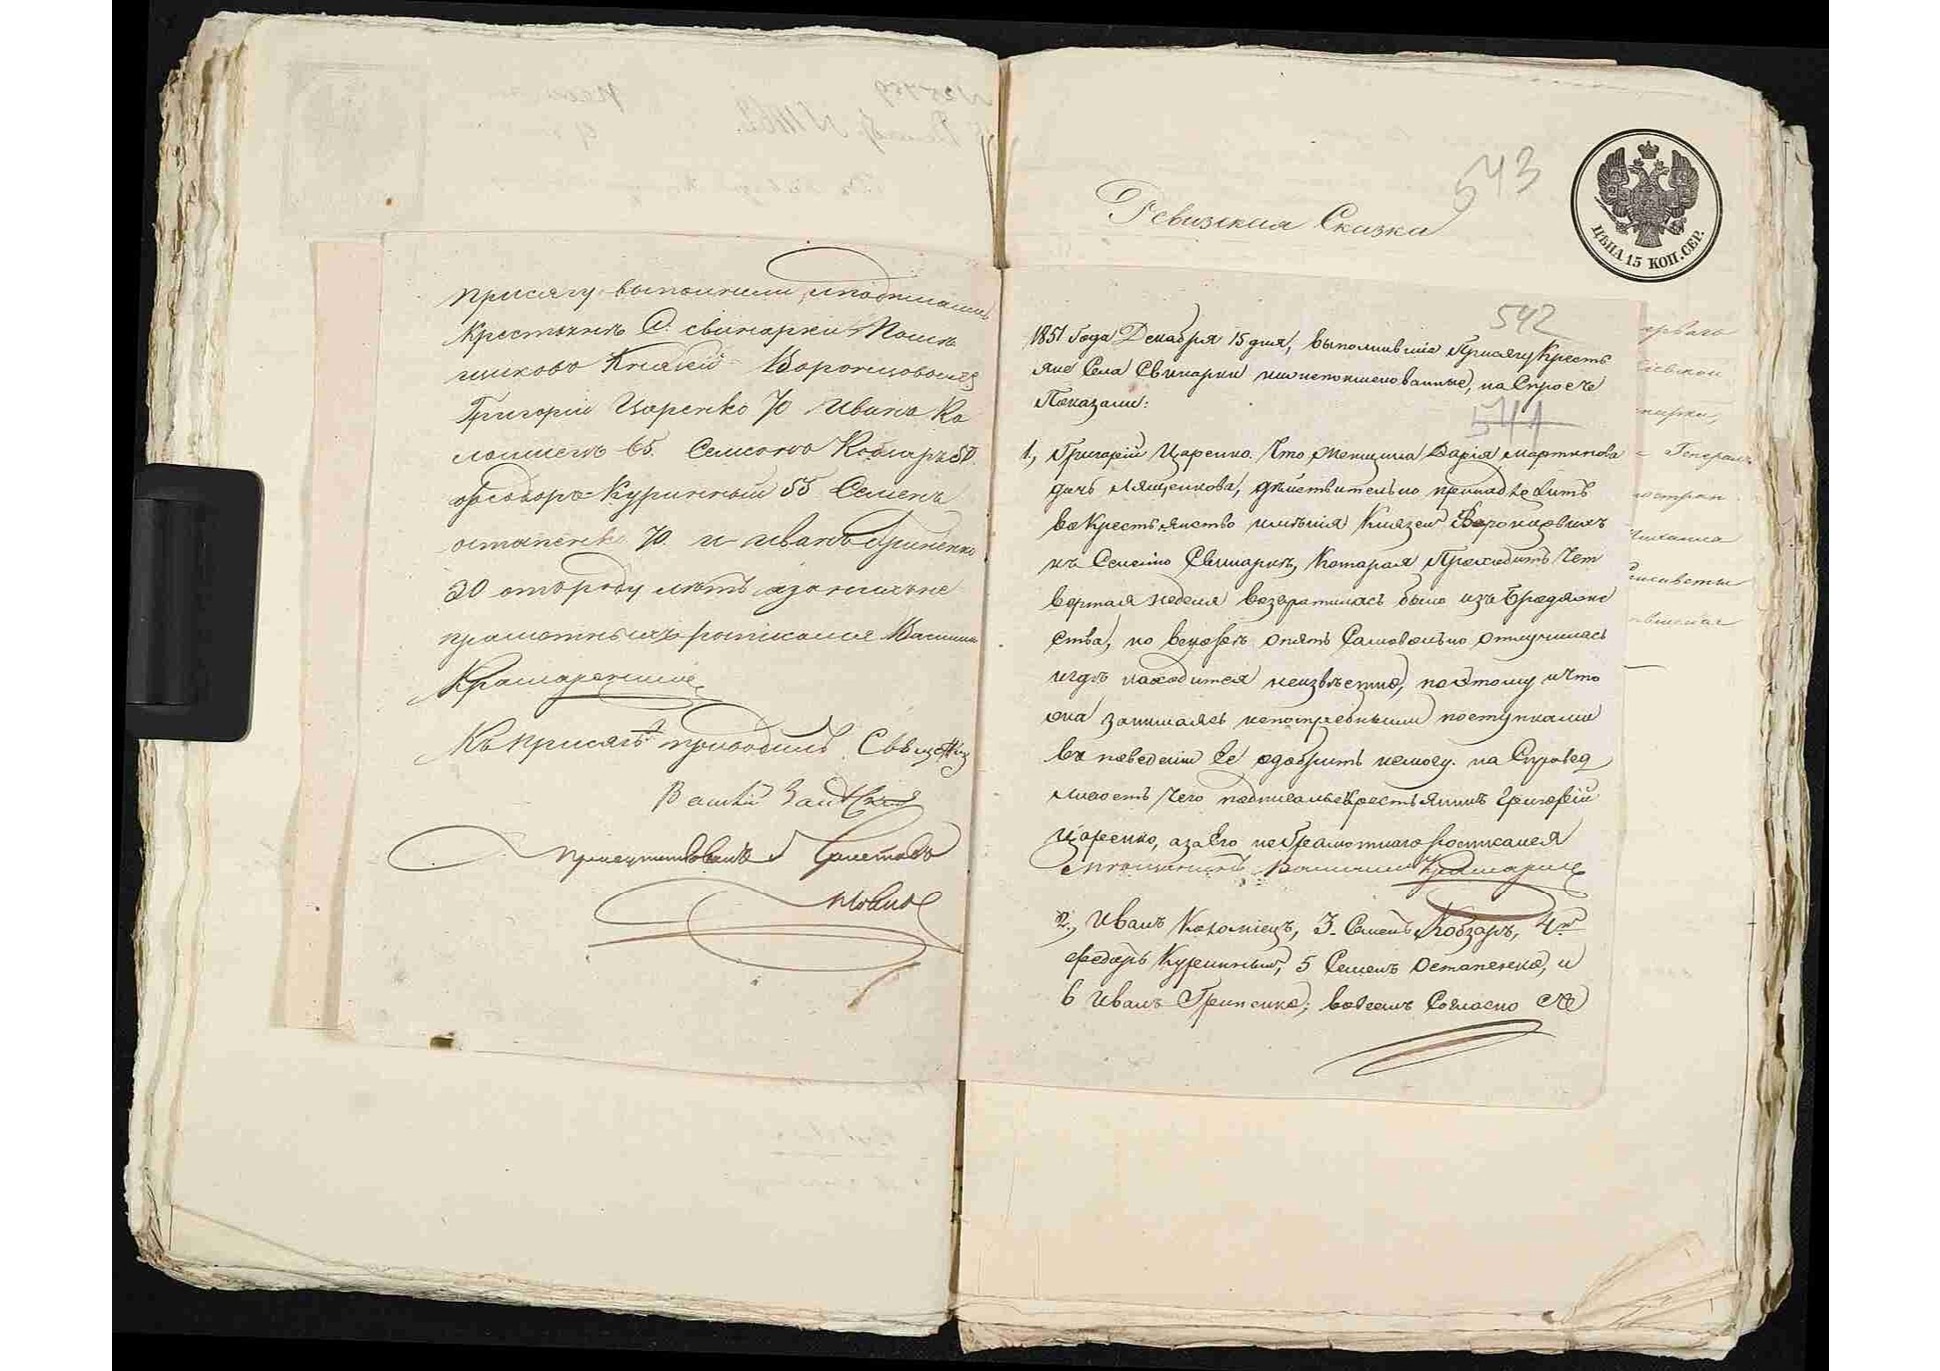 присягу выполнили, и подписали
Крестьянъ С. свинарки Помѣ
щиково Князей Воронцовыхъ
Григорій Царенко 70 Иванъ Ко
ломіецъ 65. Семенъ Кобзаръ 50.
Ѳеодоръ Куринный 55 Семенъ
остапенко 70. и иванъ Гриненко
30 отъ роду лѣтъ а за нихъ не
грамотныхъ росписался Василий
Крамаренко
Къ присягѣ приводилъ Священ
присутствовалъ
543
Ревизская Сказка
ЦѢНА 15 КОП. СЕР.
542
1851 Года Декабря 15 дня, выполнившие Присягу Кресть
яне Села Свинарки нижепоименованные, на Спросъ
Показали:
541
1, Григорій Царенко. Что женщина Дарія Мартинова
дочь Лященкова, дѣйствительно принадлежитъ
въ Крестьянство имѣнія Князей Воронцовыхъ
къ Селенію Свинаркѣ, Которая Проходитъ Чет
вертая неделя возвратилась было изъ Бродяже
ства, но вскорѣ опять Самовольно отлучилась
и гдѣ находится неизвѣстно, поэтому и что
она занималась непотребными поступками
въ поведеніи Ее одобрить немогу. на Справед
ливость Чего подписался Крестьянинъ Григорій
Царенко, а за Его неграмотнаго росписался
Василий Крамаренко
2., Иванъ Коломіецъ, 3. Семенъ Кобзаръ, 4й
Федоръ Куринный, 5 Семенъ Остапенко, и
6 Иванъ Гриненко; во всемъ Согласно Съ